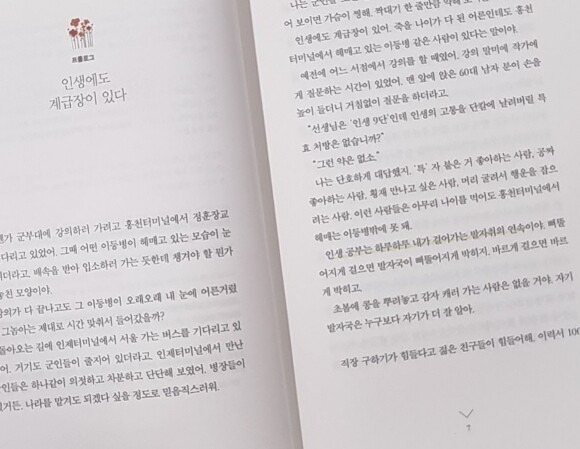 프롤로그
인생에도
계급장이 있다
군부대에 강의하러 가려고 홍천터미널에서 정훈장교
다리고 있었어. 그때 어떤 이등병이 헤매고 있는 모습이 눈
더라고. 배속을 받아 입소하러 가는 듯한데 챙겨야 할 뭔가
모양이야.
다 끝나고도 그 이등병이 오래오래 내 눈에 어른거렸
그놈아는 제대로 시간 맞춰서 들어갔을까?
돌아오는 길에 인제터미널에서 서울 가는 버스를 기다리고 있
어. 거기도 군인들이 줄지어 있더라고. 인제터미널에서 만난
인들은 하나같이 의젓하고 차분하고 단단해 보였어. 병장들이
거든. 나라를 맡겨도 되겠다 싶을 정도로 믿음직스러워.
어 보이면 가슴이 찡해. 짝대기 한 줄만큼
인생에도 계급장이 있어. 죽을 나이가 다 된 어른인데도 홍천
터미널에서 헤매고 있는 이등병 같은 사람이 있다는 말이야.
예전에 어느 서점에서 강의를 할 때였어. 강의 말미에 작가에
게 질문하는 시간이 있었어. 맨 앞에 앉은 60대 남자 분이 손을
높이 들더니 거침없이 질문을 하더라고.
“선생님은 ‘인생 9단’인데 인생의 고통을 단칼에 날려버릴 특
효 처방은 없습니까?”
“그런 약은 없소.”
나는 단호하게 대답했지. ‘특’ 자 붙은 거 좋아하는 사람, 공짜
좋아하는 사람, 횡재 만나고 싶은 사람, 머리 굴려서 행운을 잡으
려는 사람. 이런 사람들은 아무리 나이를 먹어도 홍천터미널에서
헤매는 이등병밖에 못 돼.
인생 공부는 하루하루 내가 걸어가는 발자취의 연속이야. 삐뚤
어지게 걸으면 발자국이 삐뚤어지게 박히지. 바르게 걸으면 바르
게 박히고.
초봄에 콩을 뿌려놓고 감자 캐러 가는 사람은 없을 거야. 자기
발자국은 누구보다 자기가 더 잘 알아.
직장 구하기가 힘들다고 젊은 친구들이 힘들어해. 이력서 100
7